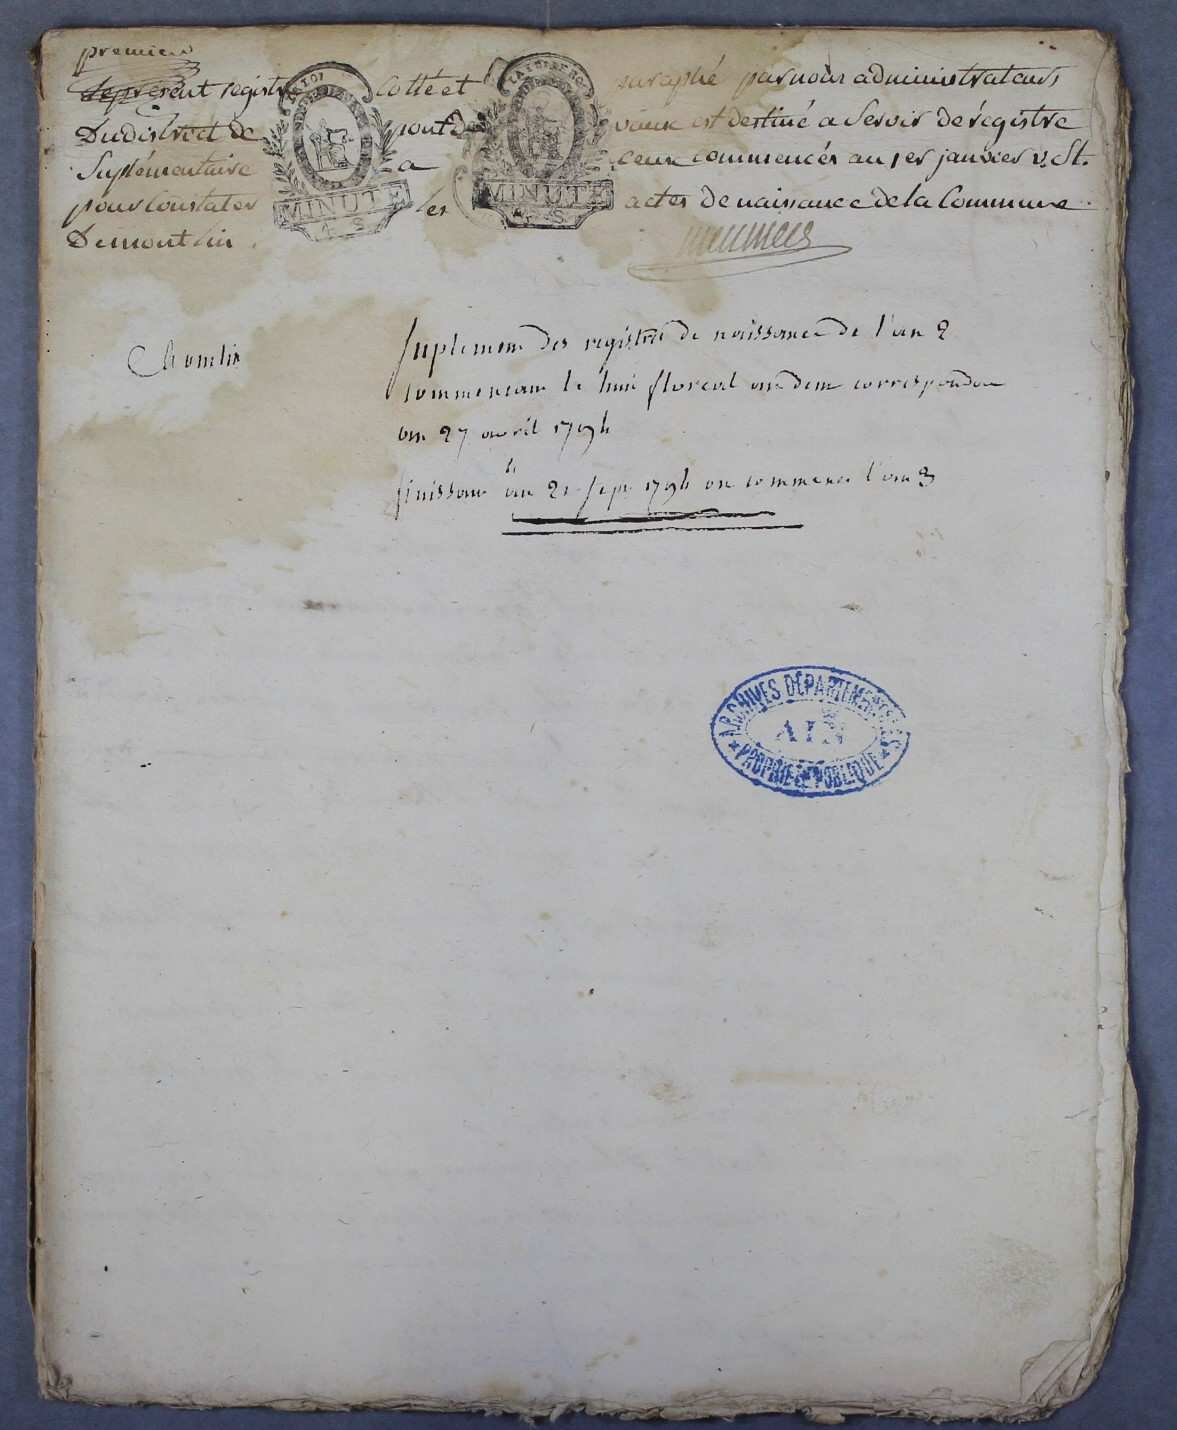 premier
Le present registre Cotté et paraphé par nous administrateurs
Du district de pont de vaux est destiné a Servir de régistre
Suplémentaire a ceux commencés au 1er janvier v. St.
pour Constater les actes de naissance de la Commune
De montlin
meunier
suplement des registre de naissance de l'an 2
commencant le huit floreal an deux correspondan
au 27 avril 1794
finissant au 21 sept 1794 ou commence l'an 3
LA LOI
MINUTE
MINUTE
ARCHIVES DÉPARTEMENTALES
AIN
PROPRIÉTÉ PUBLIQUE